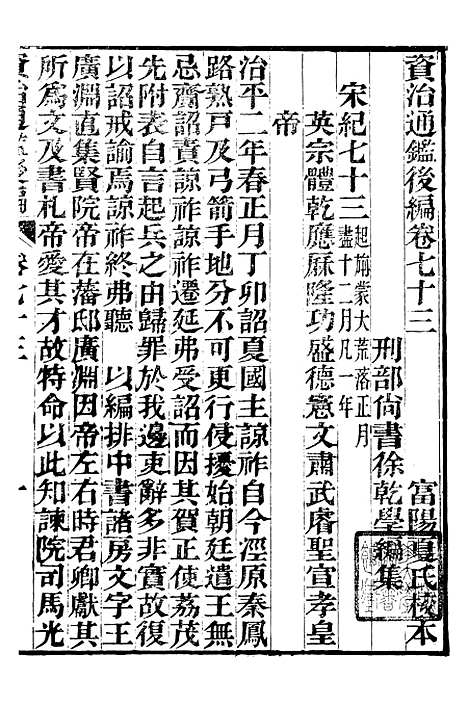 資治通鑑後編卷七十三
富陽夏氏校本
刑部尚書徐乾學編集
宋紀七十三起旃蒙大荒落正月盡十二月凡一年
英宗體乾應厤隆功盛德憲文肅武睿聖宣孝皇
帝
治平二年春正月丁卯詔夏國主諒祚自今涇原秦鳳
路熟戶及弓箭手地分不可更行侵擾始朝廷遣王無
忌齎詔責諒祚遷延弗受詔而因其賀正使荔茂
先附表自言起兵之由歸罪於我邊吏辭多非實故復
以詔戒諭焉諒祚終弗聽　以編排中書諸房文字王
廣淵直集賢院帝在藩邸廣淵因帝左右時君卿獻其
所爲文及書札帝愛其才故特命以此知諫院司馬光
卷七十三
一